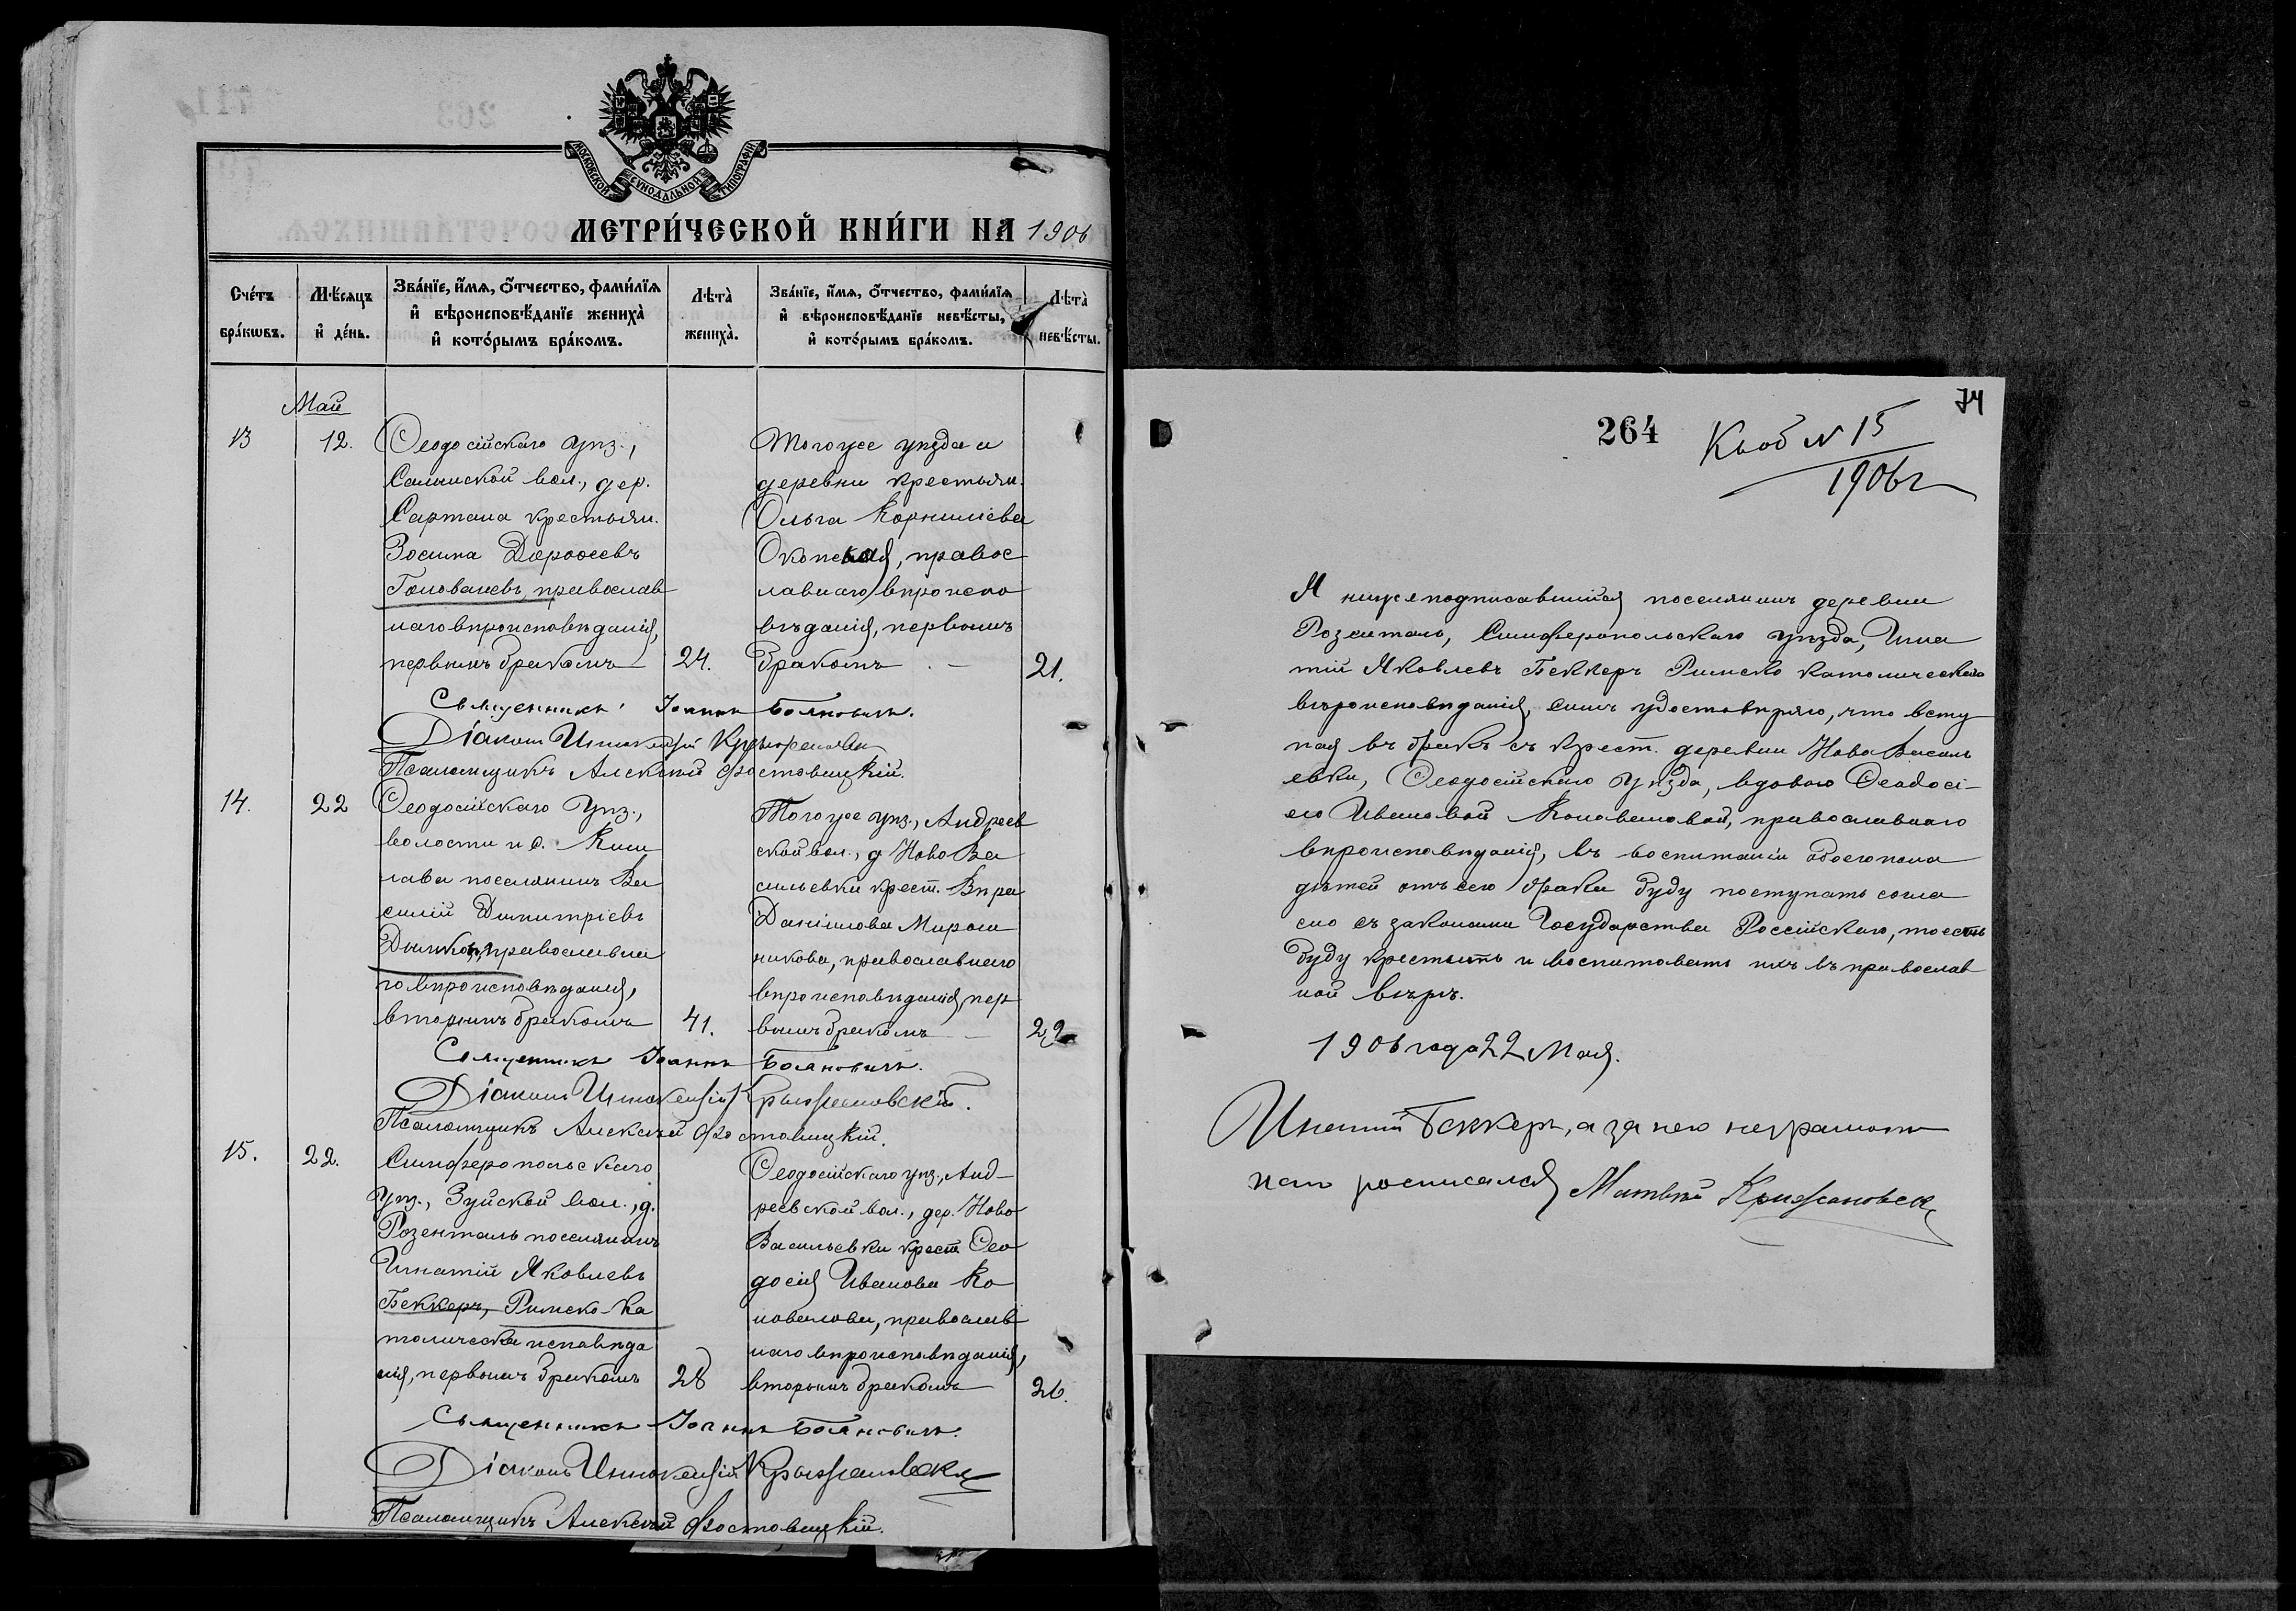 МОСКОВСКОЙ СѴНОДАЛЬНОЙ ТИПОГРАФІИ
МЕТРИ́ЧЕСКОЙ КНИ́ГИ НА 1906
Сче́тъ бра́кѡвъ.
Мѣ́сяцъ и҆ де́нь.
Зва́нїе, и҆́мѧ, ѻ҆́тчество, фами́лїѧ
и҆ вѣроисповѣ́данїе жениха̀
и҆ кото́рымъ бра́комъ.
Лѣта̀ жениха̀.
Зва́нїе, и҆́мѧ, ѻ҆́тчество, фами́лїѧ
и҆ вѣроисповѣ́данїе невѣ́сты,
и҆ кото́рымъ бра́комъ.
Лѣта̀ невѣ́сты.
Май
13
12.
Ѳеодосійскаго уѣз.,
Салынской вол., дер.
Сартана крестьян.
Зосима Дороѳеевъ
Головачевъ, православ
наго вѣроисповѣданія,
первымъ бракомъ
24.
Того же уѣзда и
деревни крестьян.
Ольга Корнилiева
правос
лавнаго вѣроиспо
вѣданія, первымъ
бракомъ
21.
Священникъ Іоаннъ Бояновичъ.
Діаконъ Иннокентій Крыжановскій
Псаломщикъ Алексѣй Фостовицкій.
14.
22
Ѳеодосійскаго уѣз.,
волости и д. Киш
лава поселянинъ Ва
силій Димитріевъ
православна
го вѣроисповѣданія,
вторымъ бракомъ
41.
Того же уѣз., Андреев
ской вол., д Ново Ва
сильевки крест. Вѣра
Даніилова Мирош
никова, православнаго
вѣроисповѣданія, пер
вымъ бракомъ
22
Священникъ Іоаннъ Бояновичъ.
Діаконъ Иннокентій Крыжановскій.
Псаломщикъ Алексѣй Фостовицкій.
15.
22.
Симферопольскаго
уѣз., Зуйской вол., д.
Розенталь поселянинъ
Игнатій Яковлевъ
Беккеръ, Римско-ка
толическа исповѣда
нія, первымъ бракомъ
28
Ѳеодосійскаго уѣз., Анд-
реевской вол., дер. Ново
Васильевки крест Ѳео
досія Иванова Ко
новалова, православ
наго вѣроисповѣданія,
вторымъ бракомъ
26.
Священникъ Іоаннъ Бояновичъ.
Діаконъ Иннокентій Крыжановскій
Псаломщикъ Алексѣй Фостовицкій.
74
264
К № 15
1906 г
Я нижеподписавшійся поселянинъ деревни
Розенталь, Симферопольскаго уѣзда, Игна
тій Яковлевъ Беккеръ Римско католическаго
вѣроисповѣданія, симъ удостовѣряю, что всту
пая въ бракъ съ крест. деревни Ново Василь
евки, Ѳеодосійскаго уѣзда, вдовою Ѳеодосі-
ею Ивановой Коноваловой, православнаго
вѣроисповѣданія, въ воспитаніи обоего пола
дѣтей отъ сего брака буду поступать согла
сно съ законами Государства Россійскаго, то есть
буду крестить и воспитовать ихъ въ православ
ной вѣрѣ.
1906 года 22 Мая.
Игнатій Беккеръ, а за него неграмот
наго росписался Матвѣй Крижановск